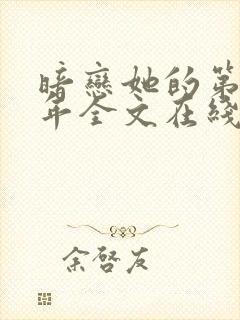 暗戀她的第
年全文在綫
余啓友